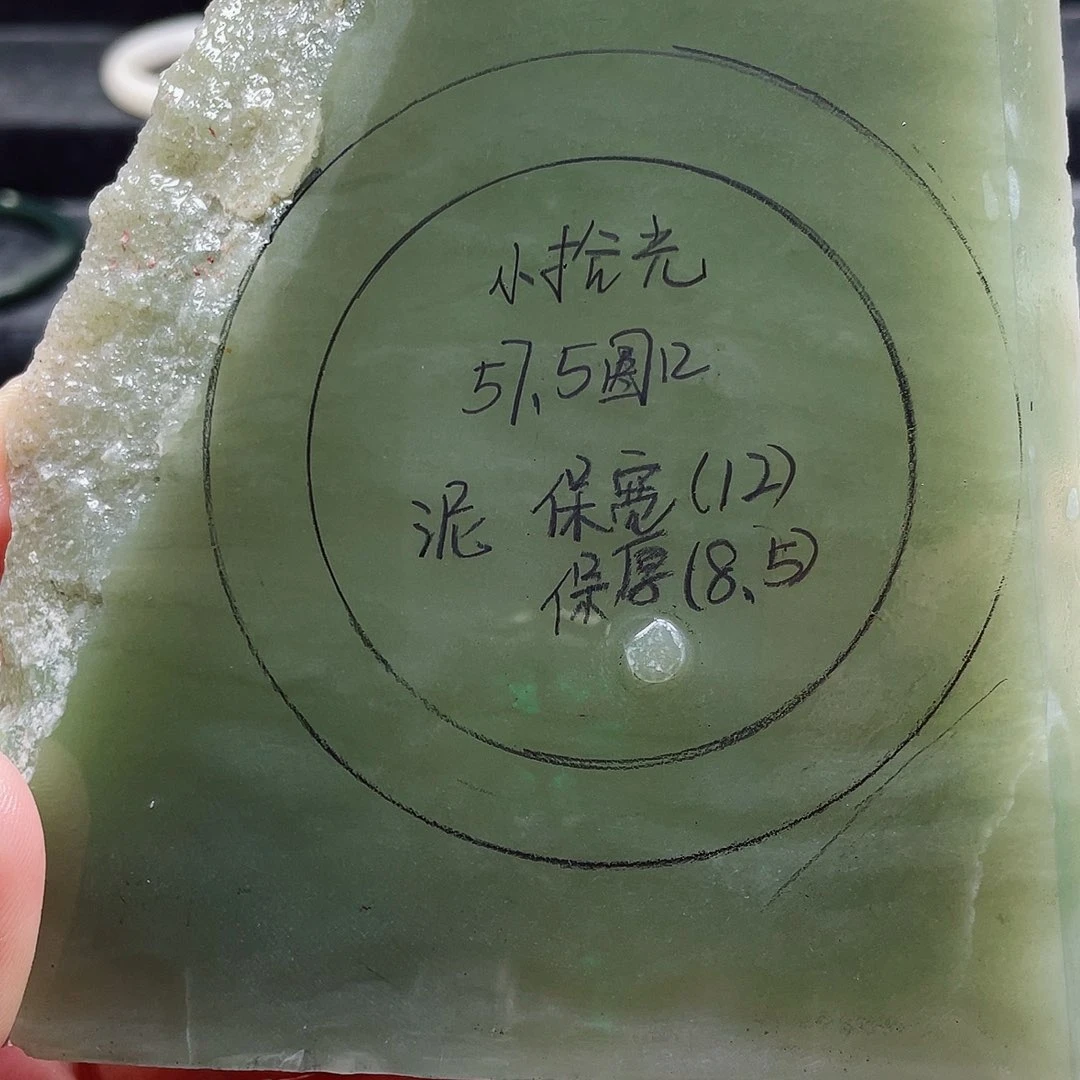 小拾光
57.5圆口
泥 保宽(12)
保厚(8.5)